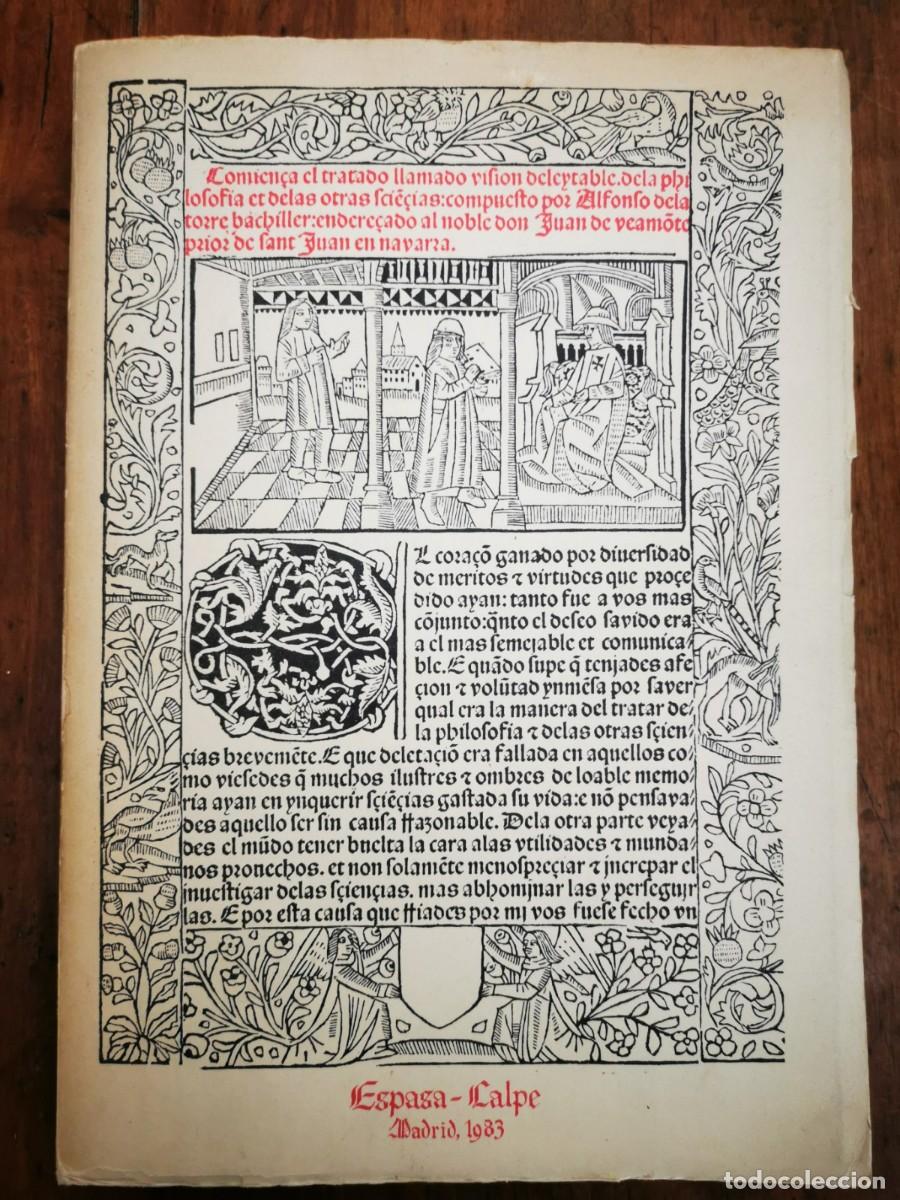 Comiença el tratado llamado vision deleytable. dela phi
losofia et delas otras sciẽçias: compuesto por Alfonso dela
torre bachiller: endereçado al noble don Juan de veamõte
prior de sant Juan en navarra.
L coraçõ ganado por diversidad
de meritos ⁊ virtudes que proçe
dido ayan: tanto fue a vos mas
cõjunto: q̃nto el deseo savido era
a el mas semejable et comunica
ble. E quãdo supe q̃ tenjades afe
çion ⁊ volũtad ynmẽsa por saver
qual era la manera del tratar de
la philosofia ⁊ delas otras sçien
çias brevemẽte. E que deletaçiõ era fallada en aquellos co
mo viesedes q̃ muchos ilustres ⁊ ombres de loable memo
ria ayan en ynquerir sçiẽçias gastada su vida: e nõ pensava
des aquello ser sin causa rrazonable. Dela otra parte veya
des el mũdo tener buelta la cara alas vtilidades ⁊ munda
nos provechos. et non solamẽte menospreçiar ⁊ jncrepar el
jnuestigar delas sçiençias. mas abhominar las y perseguir
las. E por esta causa que rriades por mi vos fuese fecho vn
Espasa-Calpe
Madrid, 1983
todocoleccion